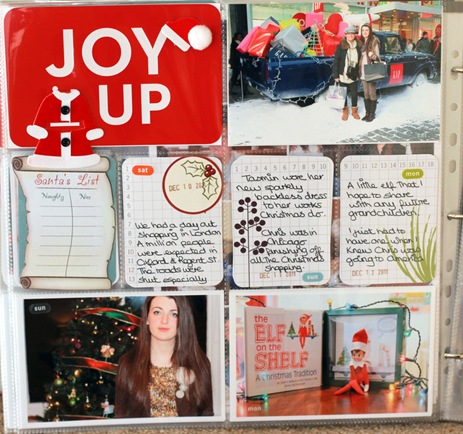 JOY
UP
GAP
Santa's List
Naughty Nice
sat
DEC 10 2011
We had a day out
shopping in London
A million people
were expected in
Oxford & Regent St
The roads were
shut especially
Tazmin wore her
new sparkly
backless dress
to her works
Christmas do.
Chris was in
Chicago
finishing off
all the Christmas
shopping.
DEC 11 2011
sun
mon
A little elf that I
hope to share
with my future
grandchildren.
I just had to
have one when I
knew Chris was
going to America
DEC 12 2011
sun
the
ELF
on the
SHELF
A Christmas Tradition
mon